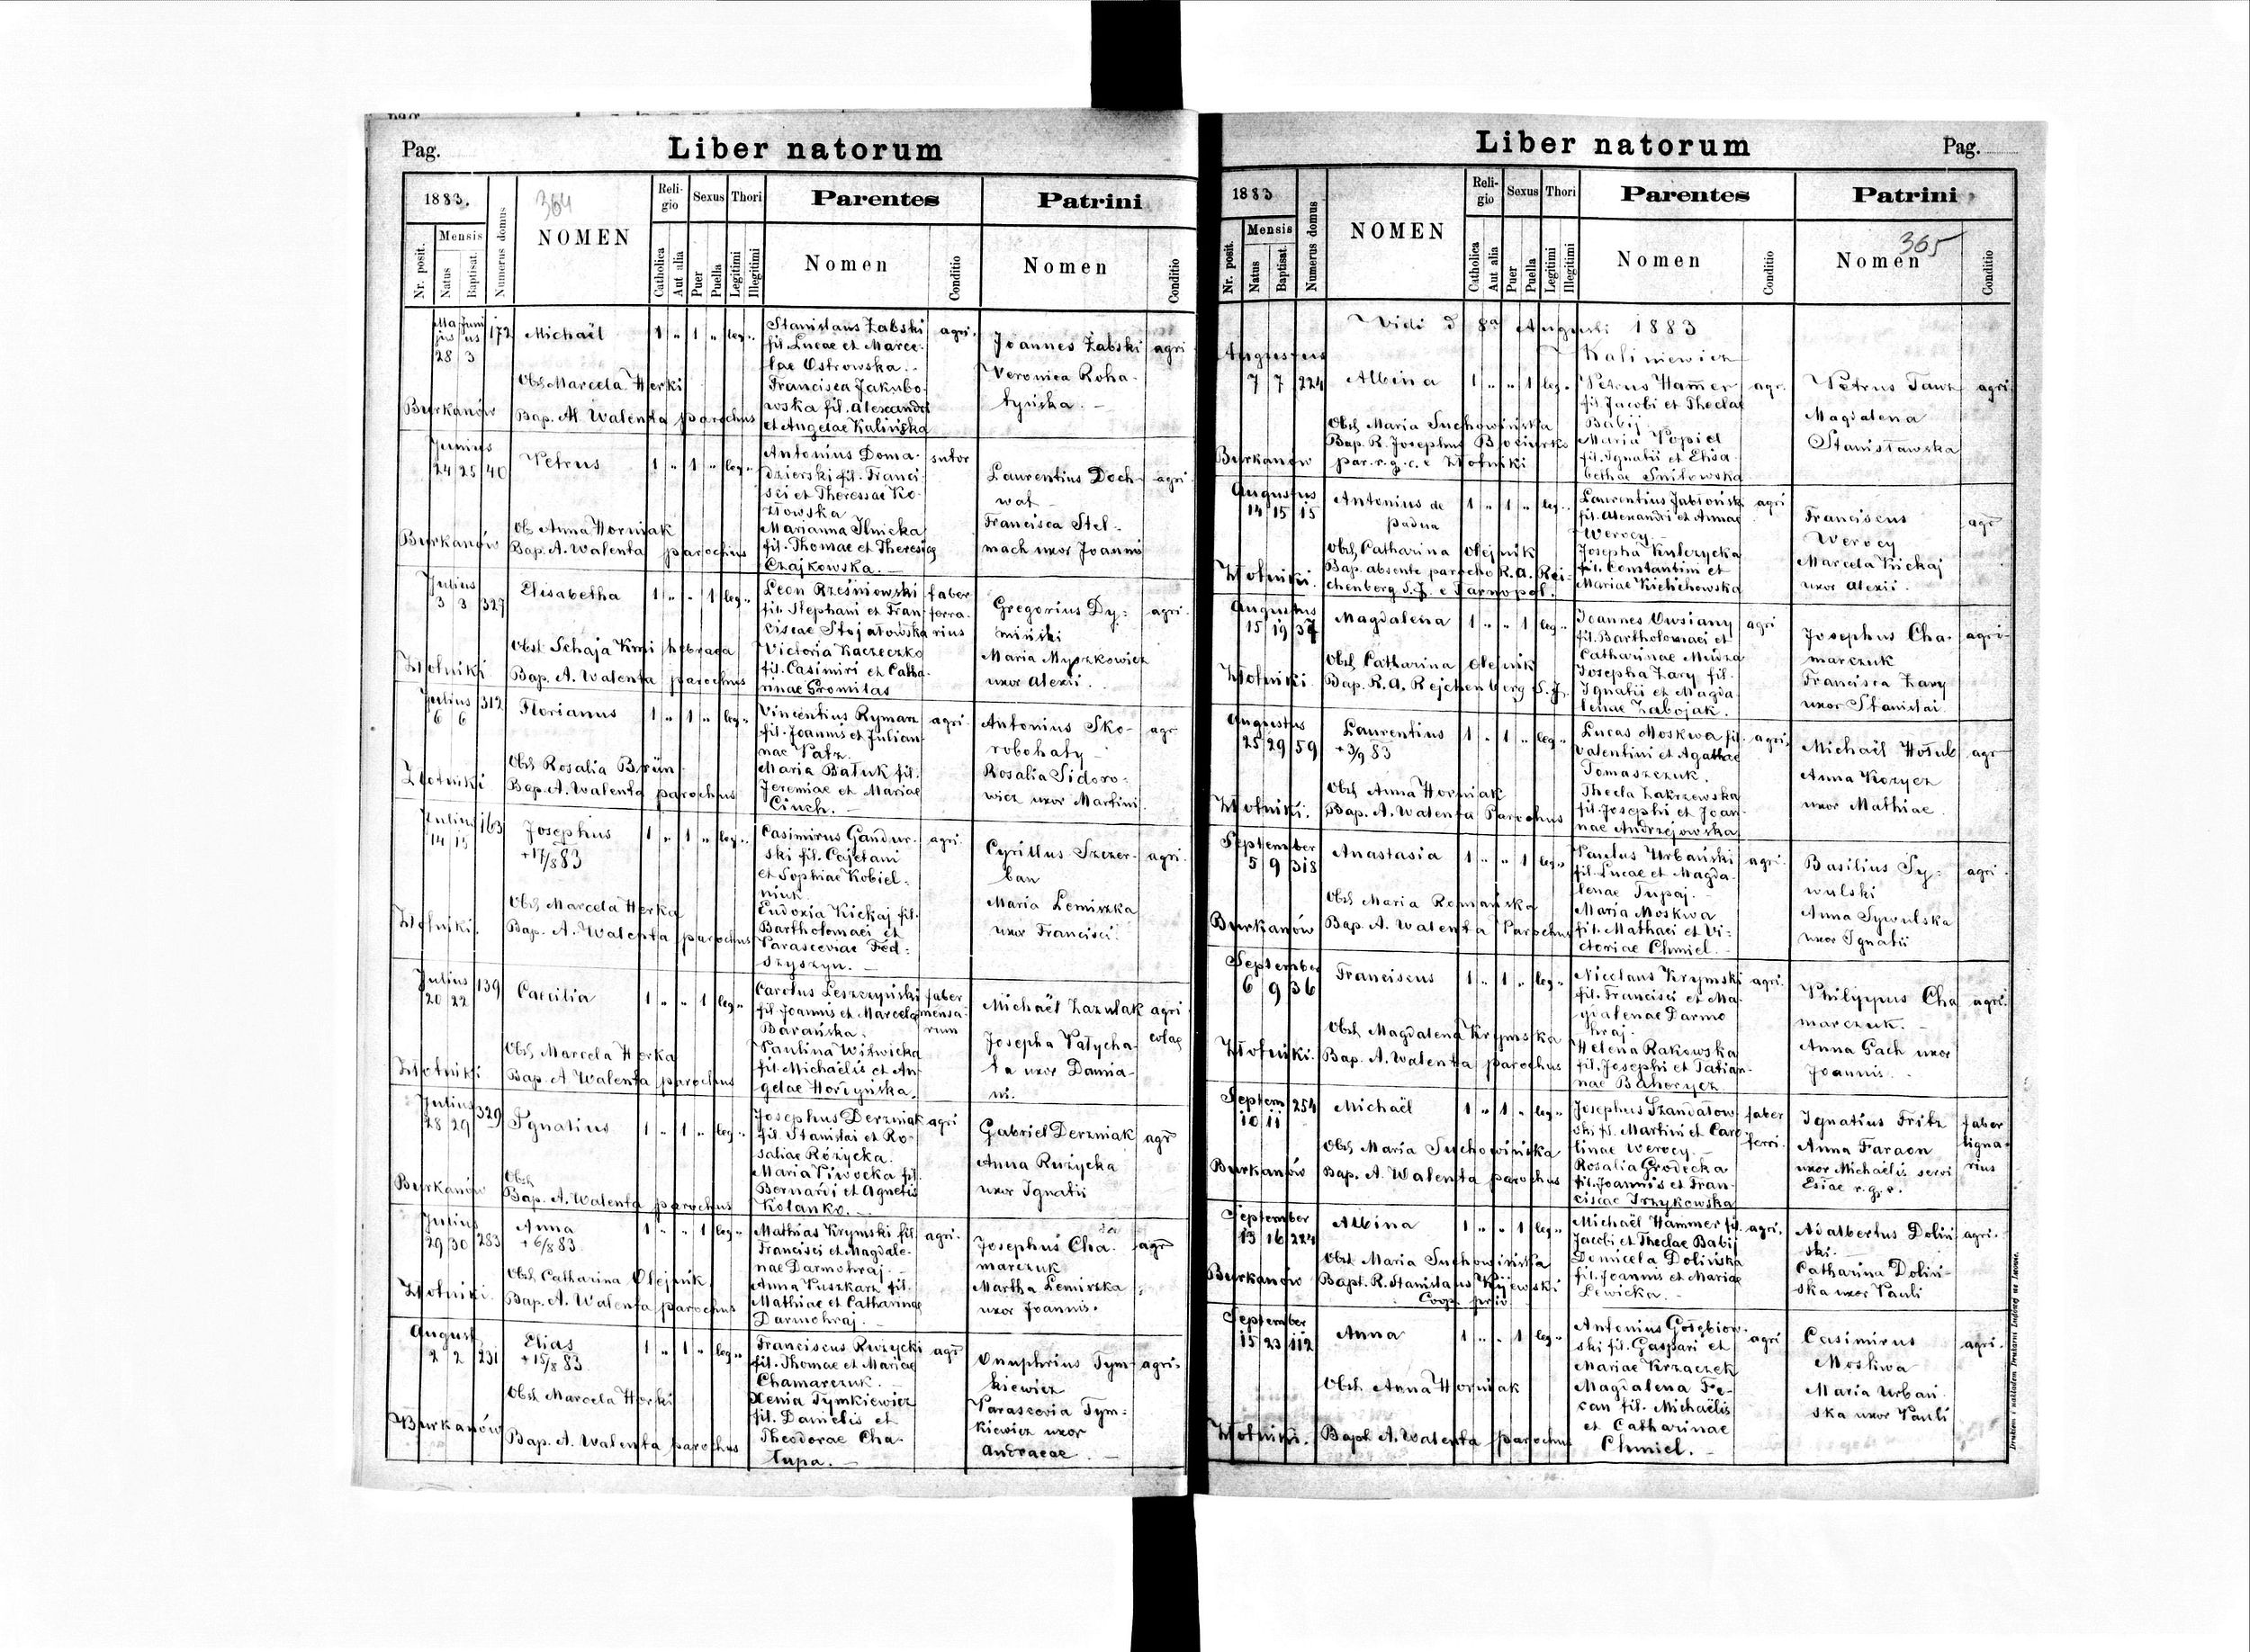 Pag.
Liber natorum
1883.
364
NOMEN
Religio
Sexus
Thori
Parentes
Patrini
Nr. posit.
Mensis
Natus
Baptisat.
Numerus domus
Catholica
Aut alia
Puer
Puella
Legitimi
Illegitimi
Nomen
Conditio
Nomen
Conditio
Majus 28 Junius 3 172 Michaël 1 „ 1 „ leg „
Obst. Marcela Herki
Burkanów Bap. A. Walenta parochus
Stanislaus Żabski
fil. Lucae et Marce-
lae Ostrowska. -
Francisca Jakubo-
wska fil. Alexandri
et Angelae Kalińska
agri.
Joannes Żabski
Veronica Roha-
tyńska. -
agri
Junius
24 25 40 Petrus 1 „ 1 „ leg „
Ob. Anna Horniak
Burkanów Bap. A. Walenta parochus
Antonius Doma-
dzierski fil. Franci-
sci et Theressae Ko-
złowska
Marianna Ilnicka
fil. Thomae et Theresiae
Czajkowska. -
sutor
Laurentius Doch-
wat -
Francisca Stel-
mach uxor Joannis
agri.
Julius
3 3 327 Elisabetha 1 „ „ 1 leg „
Obst. Schaja Kmi hebraea
Złotniki Bap. A. Walenta parochus
Leon Rześniowski
fil. Stephani et Fran-
ciscae Stojałowska
Victoria Kaczeczko
fil. Casimiri et Catha-
rinae Gromilas
faber
ferra-
rius
Gregorius Dy-
miński
Maria Myszkowicz
uxor Alexii.
agri.
Julius
6 6 312 Florianus 1 „ 1 „ leg „
Obst. Rosalia Brün
Złotniki Bap. A. Walenta parochus
Vincentius Rymarz
fil. Joannis et Julian-
nae Patz.
Maria Bałuk fil.
Jeremiae et Mariae
Ciuch. -
agri.
Antonius Sko-
robohaty -
Rosalia Sidoro-
wicz uxor Martini
agr
Julius
14 15 163 Josephus 1 „ 1 „ leg „
+ 17/8 83
Obst. Marcela Herka
Złotniki. Bap. A. Walenta parochus
Casimirus Gandur-
ski fil. Cajetani
et Sophiae Kobiel-
niuk.
Eudoxia Kickaj fil.
Bartholomaei et
Parasceviae Fed-
szyszyn. -
agri.
Cyrillus Szczer-
ban
Maria Lemiszka
uxor Francisci.
agri.
Julius
20 22 139 Caecilia 1 „ „ 1 leg „
Obst. Marcela Herka
Złotniki Bap. A. Walenta parochus
Carolus Leszczyński
fil. Joannis et Marcelae
Barańska.
Paulina Witwicka
fil. Michaëlis et An-
gelae Horżyńska.
faber
mensa-
rum
Michaël Zazulak
Josepha Patycha-
ła uxor Damia-
ni.
agri
colae
Julius
28 29 329 Ignatius 1 „ 1 „ leg „
Obst.
Burkanów Bap. A. Walenta parochus
Josephus Derzniak
fil. Stanislai et Ro-
saliae Różycka.
Maria Piwocka fil.
Bernardi et Agnetis
Kolanko. -
agri
Gabriel Derzniak
Anna Różycka
uxor Ignatii
agr
Julius
29 30 283 Anna 1 „ „ 1 leg „
+ 6/8 83
Obst. Catharina Olejnik
Złotniki. Bap. A. Walenta parochus
Mathias Krymski fil.
Francisci et Magdale-
nae Darmohraj. -
Anna Puszkarz fil.
Mathiae et Catharinae
Darmohraj. -
agri.
Josephus Cha-
marczuk
Martha Lemiszka
uxor Joannis.
agr
August
2 2 231 Elias 1 „ 1 „ leg „
+ 15/8 83
Obst. Marcela Herki
Burkanów Bap. A. Walenta parochus
Franciscus Rużycki
fil. Thomae et Mariae
Chamarczuk. -
Xenia Tymkiewicz
fil. Danielis et
Theodorae Cha-
łupa. -
agr
Onuphrius Tym-
kiewicz
Parascevia Tym-
kiewicz uxor
Andraeae. -
agri.
Liber natorum
Pag.
1883
NOMEN
Religio
Sexus
Thori
Parentes
Patrini
365
Nr. posit.
Mensis
Natus
Baptisat.
Numerus domus
Catholica
Aut alia
Puer
Puella
Legitimi
Illegitimi
Nomen
Conditio
Nomen
Conditio
Vidi d 8a Augusti 1883
Kaliniewicz
Augustus
7 7 224 Albina 1 „ „ 1 leg „
Obst. Maria Suchowińska
Bap. R. Josephus
Burkanów par. r. g. c. e Złotniki
Petrus Ham̄er
fil. Jacobi et Theclae
Babij
Maria Popiel
fil. Ignatii et Elisa-
bethae Snitowska
agr.
Petrus Tawz
Magdalena
Stanisławska
agri
Augustus
14 15 15 Antonius de 1 „ 1 „ leg „
padua
Obst. Catharina Olejnik
Bap. absente parocho R. A. Rei-
Złotniki. chenberg S. J. e Tarnopol.
Laurentius Jabłoński
fil. Alexandri et Annae
Werocy. -
Josepha Kulczycka
fil. Constantini et
Mariae Kichichowska
agri
Franciscus
Werocy
Marcela Kickaj
uxor Alexii.
agr
Augustus
15 19 37 Magdalena 1 „ „ 1 leg „
Obst. Catharina Olejnik
Złotniki Bap. R. A. Rejchenberg S. J.
Joannes Owsiany
fil. Bartholomaei et
Catharinae Mudza
Josepha Zary fil.
Ignatii et Magda-
lenae Zabojak.
agri
Josephus Cha-
marczuk
Francisca Zary
uxor Stanislai
agri
Augustus
25 29 59 Laurentius 1 „ 1 „ leg „
+ 3/9 83
Obst. Anna Horniak
Złotniki. Bap. A. Walenta Parochus
Lucas Moskwa fil.
Valentini et Agathae
Tomaszczuk.
Thecla Zakrzewska
fil. Josephi et Joan-
nae Andrzejowska
agri.
Michaël Hołub
Anna Kozycz
uxor Mathiae
agr
September
5 9 318 Anastasia 1 „ „ 1 leg „
Obst. Maria Romańska
Burkanów Bap. A. Walenta Parochus
Paulus Urbański
fil. Lucae et Magda-
lenae Tupaj. -
Maria Moskwa
fil. Mathaei et Vi-
ctoriae Chmiel. -
agri.
Basilius Sy-
wulski
Anna Sywulska
uxor Ignatii
agri.
September
6 9 36 Franciscus 1 „ 1 „ leg „
Obst. Magdalena Krymska
Złotniki. Bap. A. Walenta parochus
Nicolaus Krymski
fil. Francisci et Ma-
gdalenae Darmo
hraj.
Helena Rakowska
fil. Josephi et Tatian-
nae Bahorycz
agri.
Philippus Cha
marczuk. -
Anna Gach uxor
Joannis.
agri.
Septem
10 11 254 Michaël 1 „ 1 „ leg „
Obst. Maria Suchowińska
Burkanów Bap. A. Walenta parochus
Josephus Szandałow-
ski fil. Martini et Caro-
linae Werocy. -
Rosalia Grodecka
fil. Joannis et Fran-
ciscae Irzykowska
faber
ferri.
Ignatius Fritz
Anna Faraon
uxor Michaëlis servi
Esiae r. g. c.
faber
ligna-
rius
September
13 16 224 Albina 1 „ „ 1 leg „
Obst. Maria Suchowińska
Burkanów Bapt. R. Stanislaus Kijewski
Coop. priv.
Michaël Hammer fil.
Jacobi et Theclae Babij
Domicela Dolińska
fil. Joannis et Mariae
Lewicka. -
agri.
Adalbertus Doliń
ski. -
Catharina Doliń-
ska uxor Pauli
agri.
September
15 23 112 Anna 1 „ „ 1 leg „
Obst. Anna Horniak
Złotniki. Bapt. A. Walenta parochus
Antonius Gołębiow-
ski fil. Gaspari et
Mariae Krzaczek
Magdalena Fe-
can fil. Michaëlis
et Catharinae
Chmiel. -
agri
Casimirus
Moskwa
Maria Urbań
ska uxor Pauli
agri.
Drukiem i nakładem Drukarni Ludowej we Lwowie.